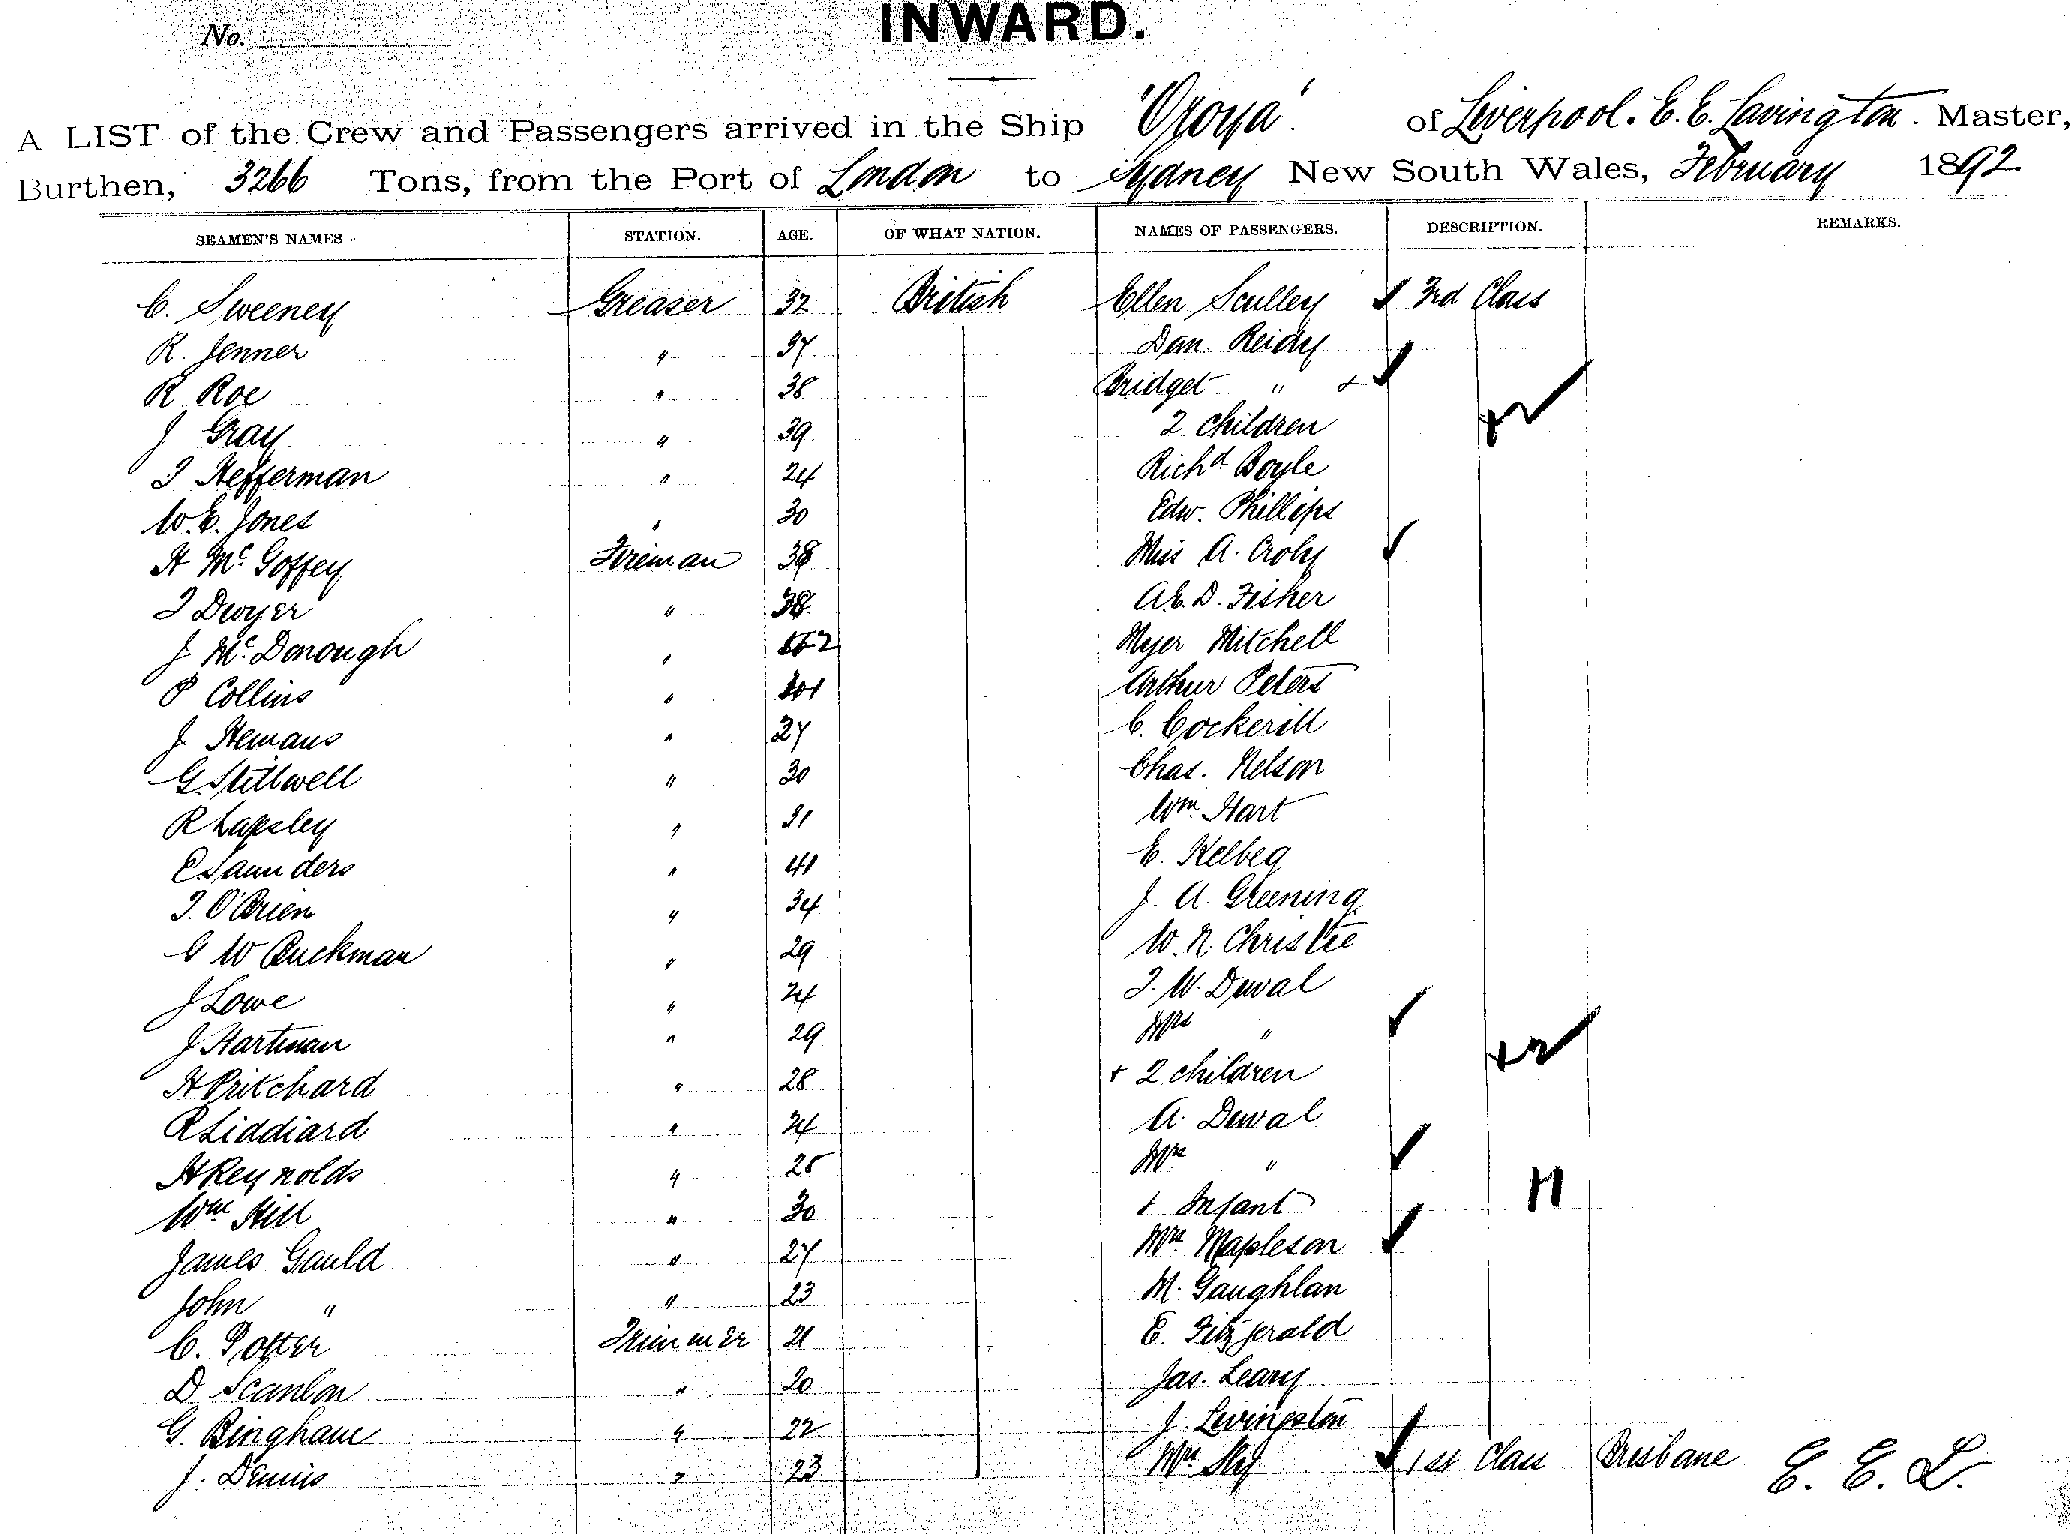 No.
INWARD.
A LIST of the Crew and Passengers arrived in the Ship 'Oroya' of Liverpool. E. E. Lavington. Master,
Burthen, 3266 Tons, from the Port of London to Sydney New South Wales, February 1892
SEAMEN'S NAMES STATION. AGE. OF WHAT NATION. NAMES OF PASSENGERS. DESCRIPTION. REMARKS.
C. Sweeney Greaser 32 British Ellen Sculley 3rd Class
R. Jenner " 37 Dan Reidy
R Roe " 38 Bridget " +
J Gray " 39 2 children +2
T Hefferman " 24 Richd Boyle
W. E. Jones " 30 Edw. Phillips
H McGoffey Fireman 38 Miss A. Croly
T Dwyer " 38 A. E. D. Fisher
J McDonough " Myer Mitchell
P Collins " Arthur Peters
J Hemans " 27 C. Cockerill
G. Stillwell " 30 Chas. Nelson
R Lapsley " 31 Wm Hart
E Saunders " 41 E. Kelbeg
T. O'Brien " 34 J. A. Greening
G W Ruckman " 29 W. N. Christie
J Lowe " 24 T. W. Duval
J Hartman " 29 Mrs " +2
H Pritchard " 28 + 2 children
R Liddiard " 24 A. Duval
H Reynolds " 25 Mrs "
Wm Hill " 30 + Infant
James Gauld " 27 Mrs Mapleson
John " " 23 M. Gaughlan
C. Potter Trimmer 21 E. Fitzgerald
D. Scanlon " 20 Jas. Leary
G. Bingham " 22 J. Livingston
J. Dennis " 23 Mr 1st Class Brisbane E. E. L.